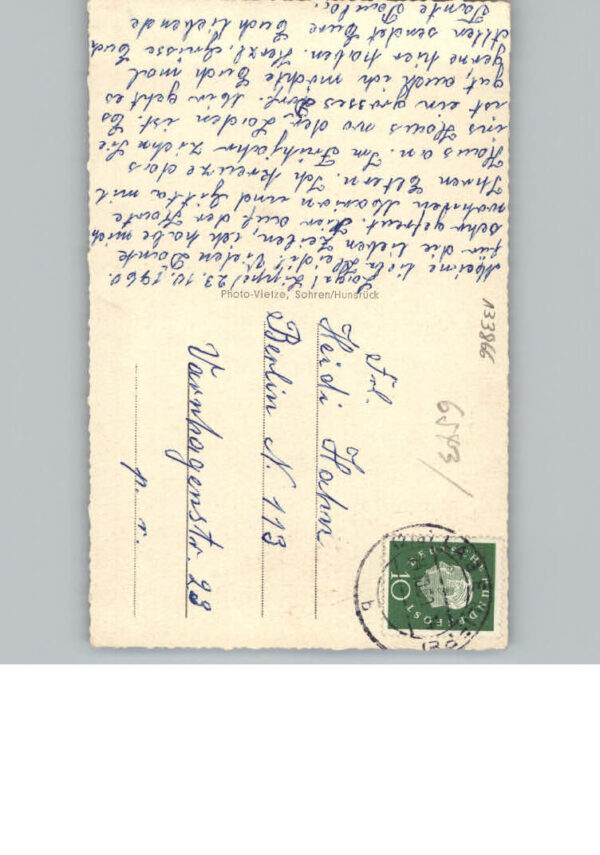 Lage (Lippe) 23.10.1960.
Meine liebe Heidi! Vielen Dank
für die lieben Zeilen, ich habe mich
sehr gefreut. Hier auf der Karte
wohnten Marian und Gitta mit
Ihren Eltern. Ich kreuze das
Haus an. Im Frühjahr ziehn Sie
ins Haus wo der Laden ist. Es
ist ein grosses Dorf. Mir geht es
gut, auch ich möchte Euch mal
gerne hier haben. Herzl. Grüsse Euch
Allen sendet Eure Euch liebende
Tante
Photo-Vietze, Sohren/Hunsrück
133866
6543/
Frl.
Heidi Hahn
Berlin N. 113
Varnhagenstr. 23
DEUTSCHE BUNDESPOST
10
LAGE
b